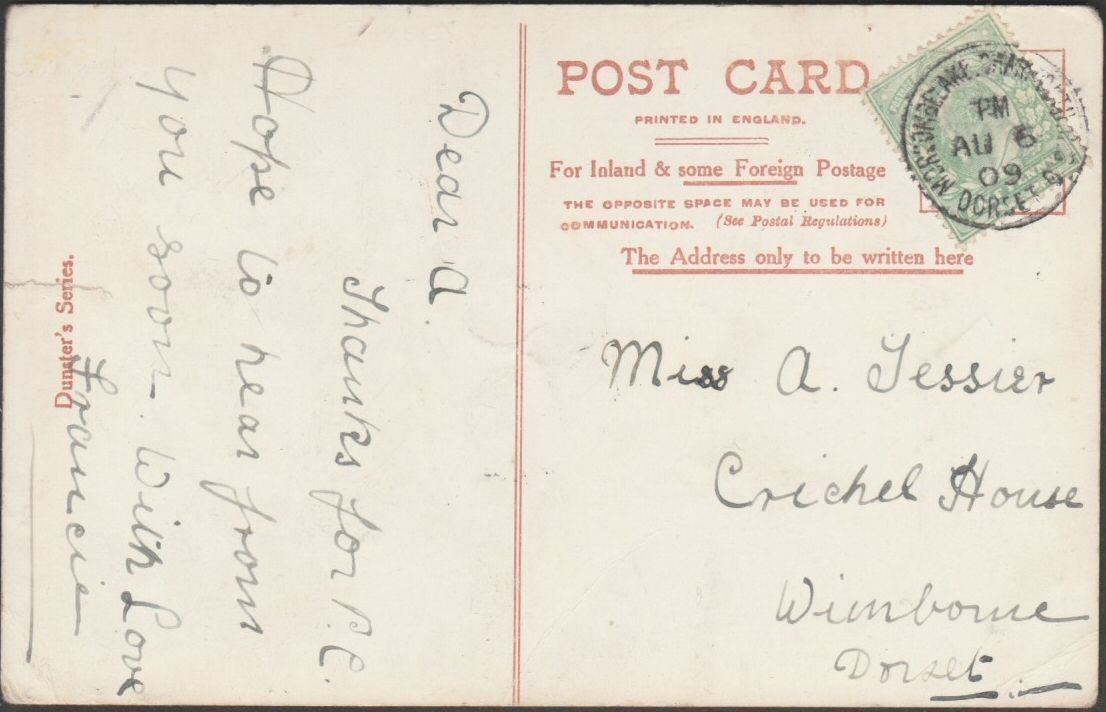 Dear A.
Thanks for P.C.
Hope to hear from
you soon. With Love
Francie
Dunster's Series.
POST CARD
PRINTED IN ENGLAND.
For Inland & some Foreign Postage
THE OPPOSITE SPACE MAY BE USED FOR
COMMUNICATION. (See Postal Regulations)
The Address only to be written here
PM
AU 6
09
DORSET
Miss A. Tessier
Crichel House
Wimborne
Dorset